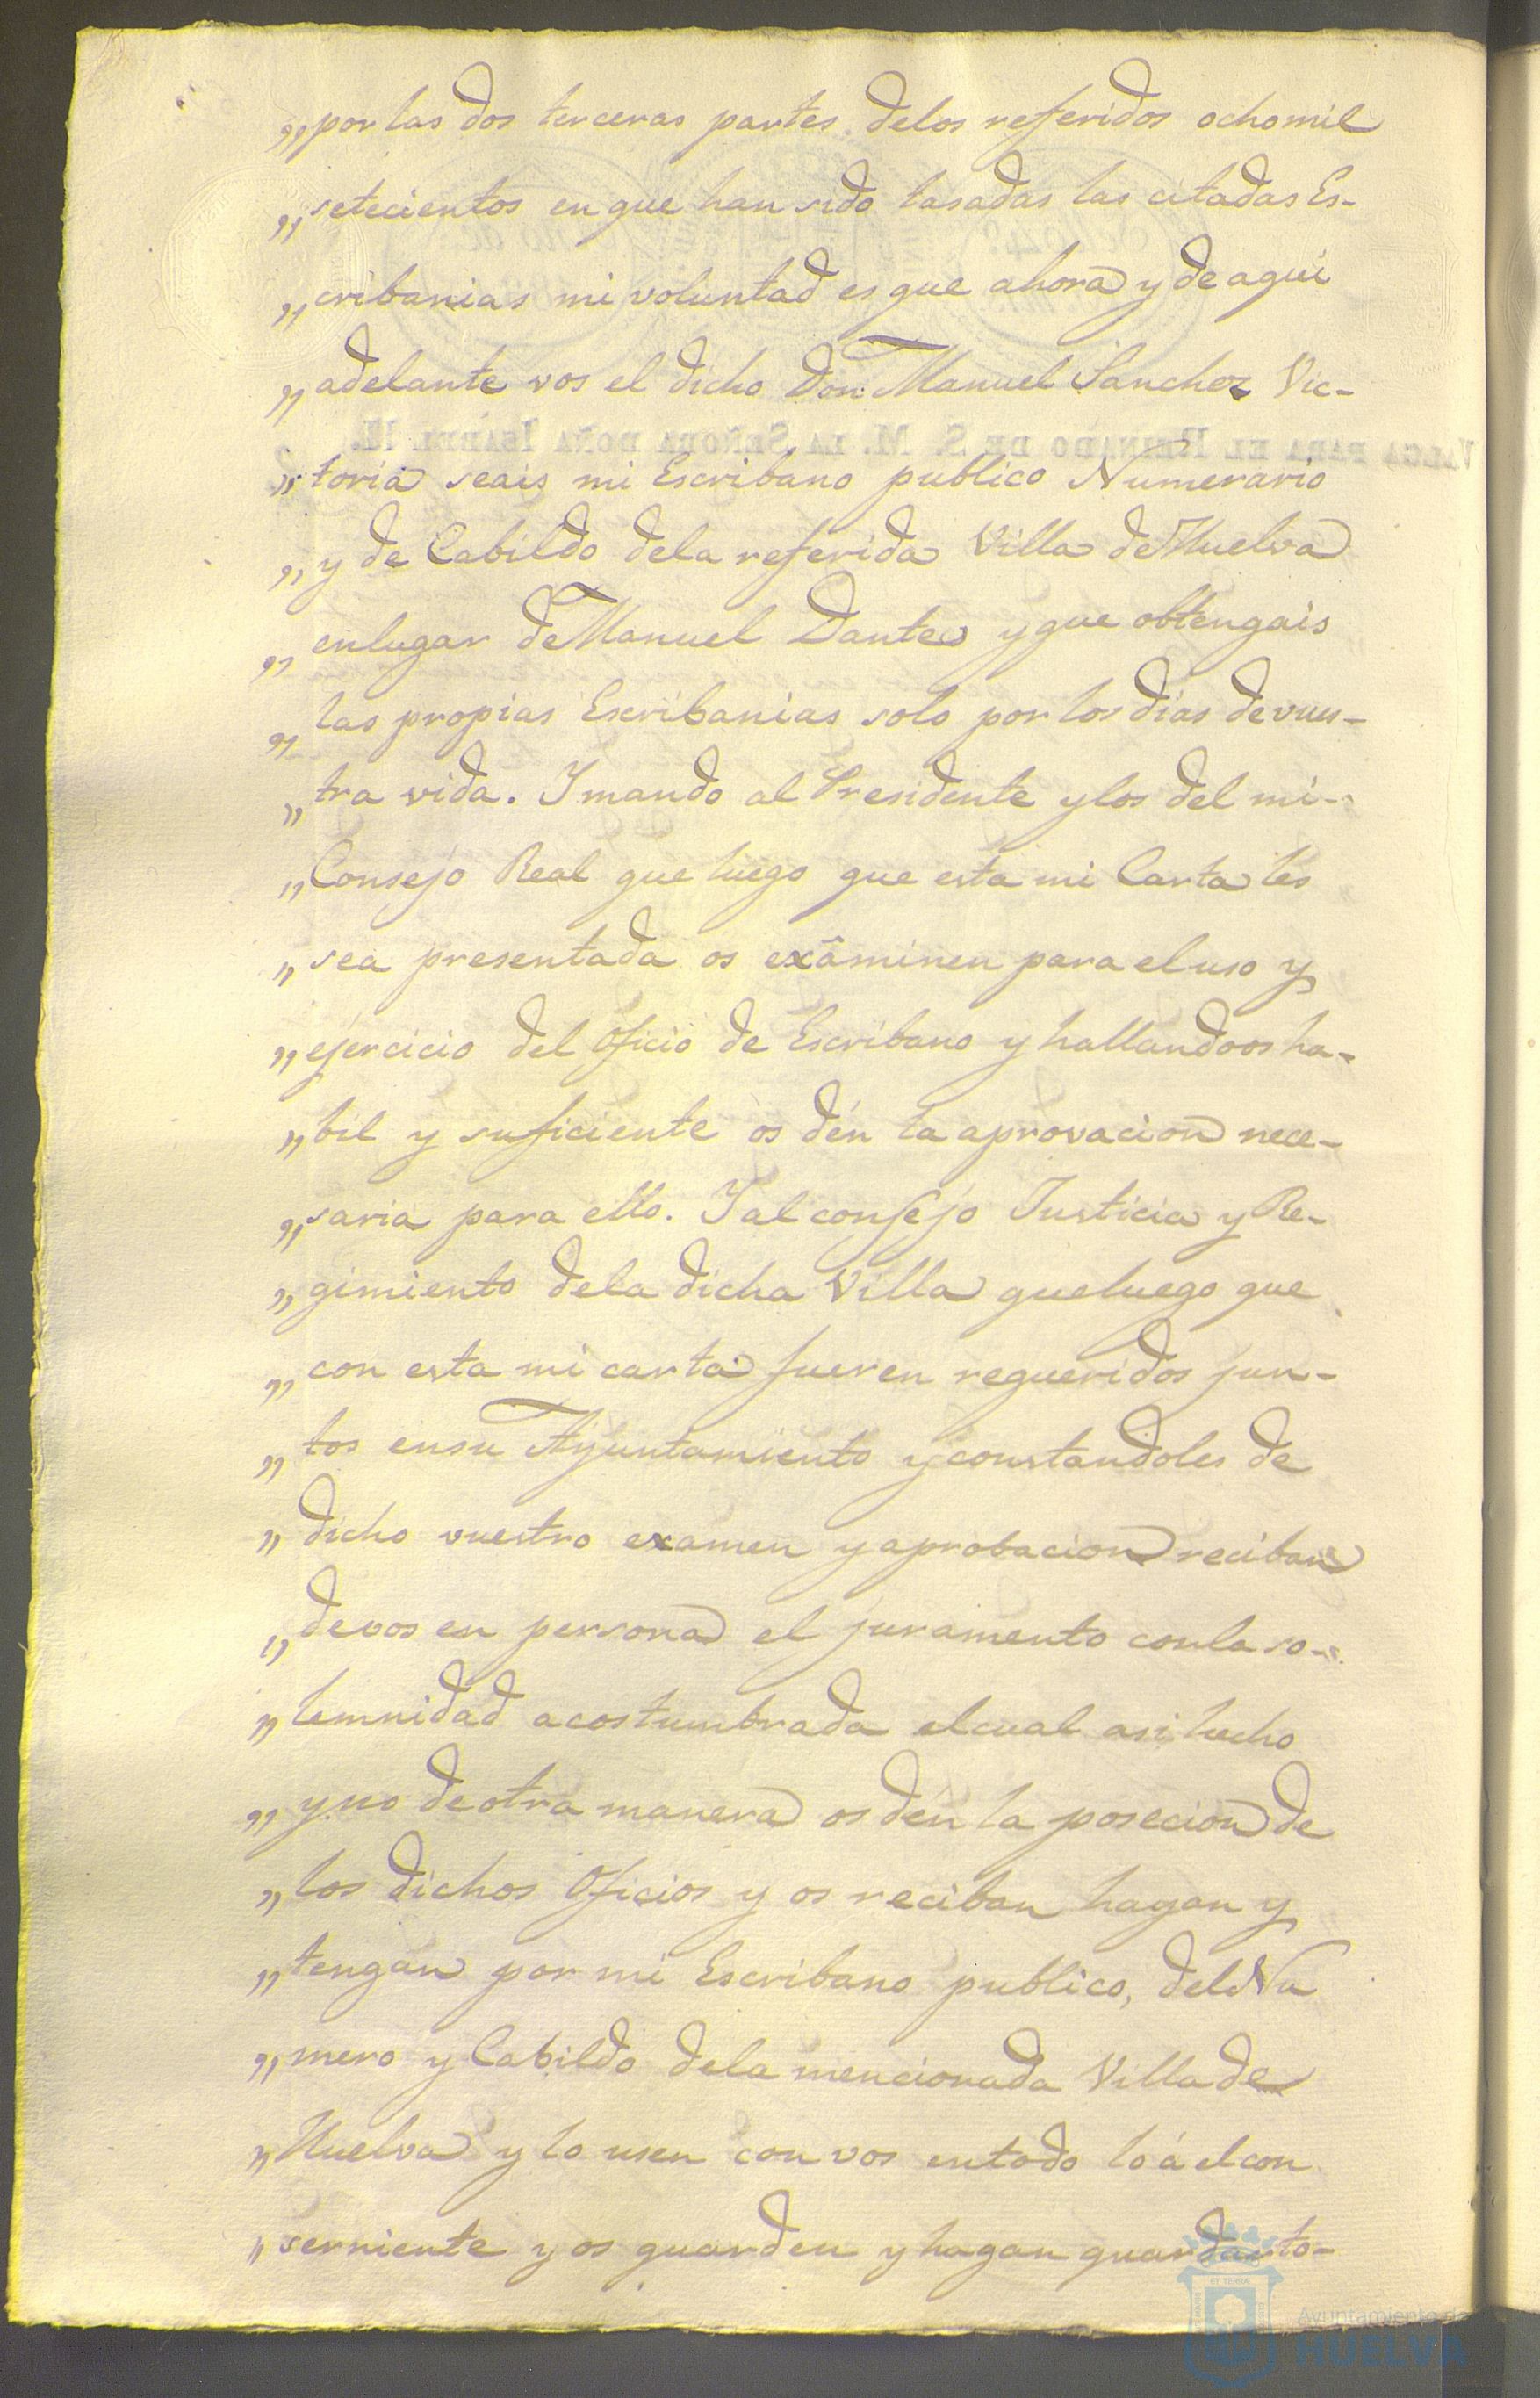 „por las dos terceras partes delos referidos ochomil
„setecientos enque han sido tasadas las citadas Es-
„cribanias mi voluntad es que ahora y de aqui
„adelante vos el dicho Don Manuel Sanchez Vic-
„toria seais mi Escribano publico Numerario
„y de Cabildo dela referida Villa de Huelva
„enlugar de Manuel Dante y que obtengais
„las propias Escribanias solo por los dias de vues-
„tra vida. Y mando al Presidente y los del mi
„Consejo Real que luego que esta mi Carta les
„sea presentada os exâminen para el uso y
„ejercicio del Oficio de Escribano y hallandoos ha-
„bil y suficiente òs dén la aprovacion nece-
„saria para ello. Y al consejo Justicia y Re-
„gimiento dela dicha Villa queluego que
„con esta mi carta fueren requeridos jun-
„tos ensu Ayuntamiento y constandoles de
„dicho vuestro examen y aprobacion reciban
„devos en persona el juramento conla so-
„lemnidad acostumbrada elcual asi hecho
„y no de otra manera os dén la posecion de
„los dichos Oficios y os reciban hayan y
„tengan por mi Escribano publico, del Nu
„mero y Cabildo dela mencionada Villa de
„Huelva y lo usen con vos entodo lo á el con
„serniente y os guarden y hagan guardar to-
VALGA PARA EL REINADO DE S. M. LA SEÑORA DOÑA ISABEL II.
Ayuntamiento de
HUELVA